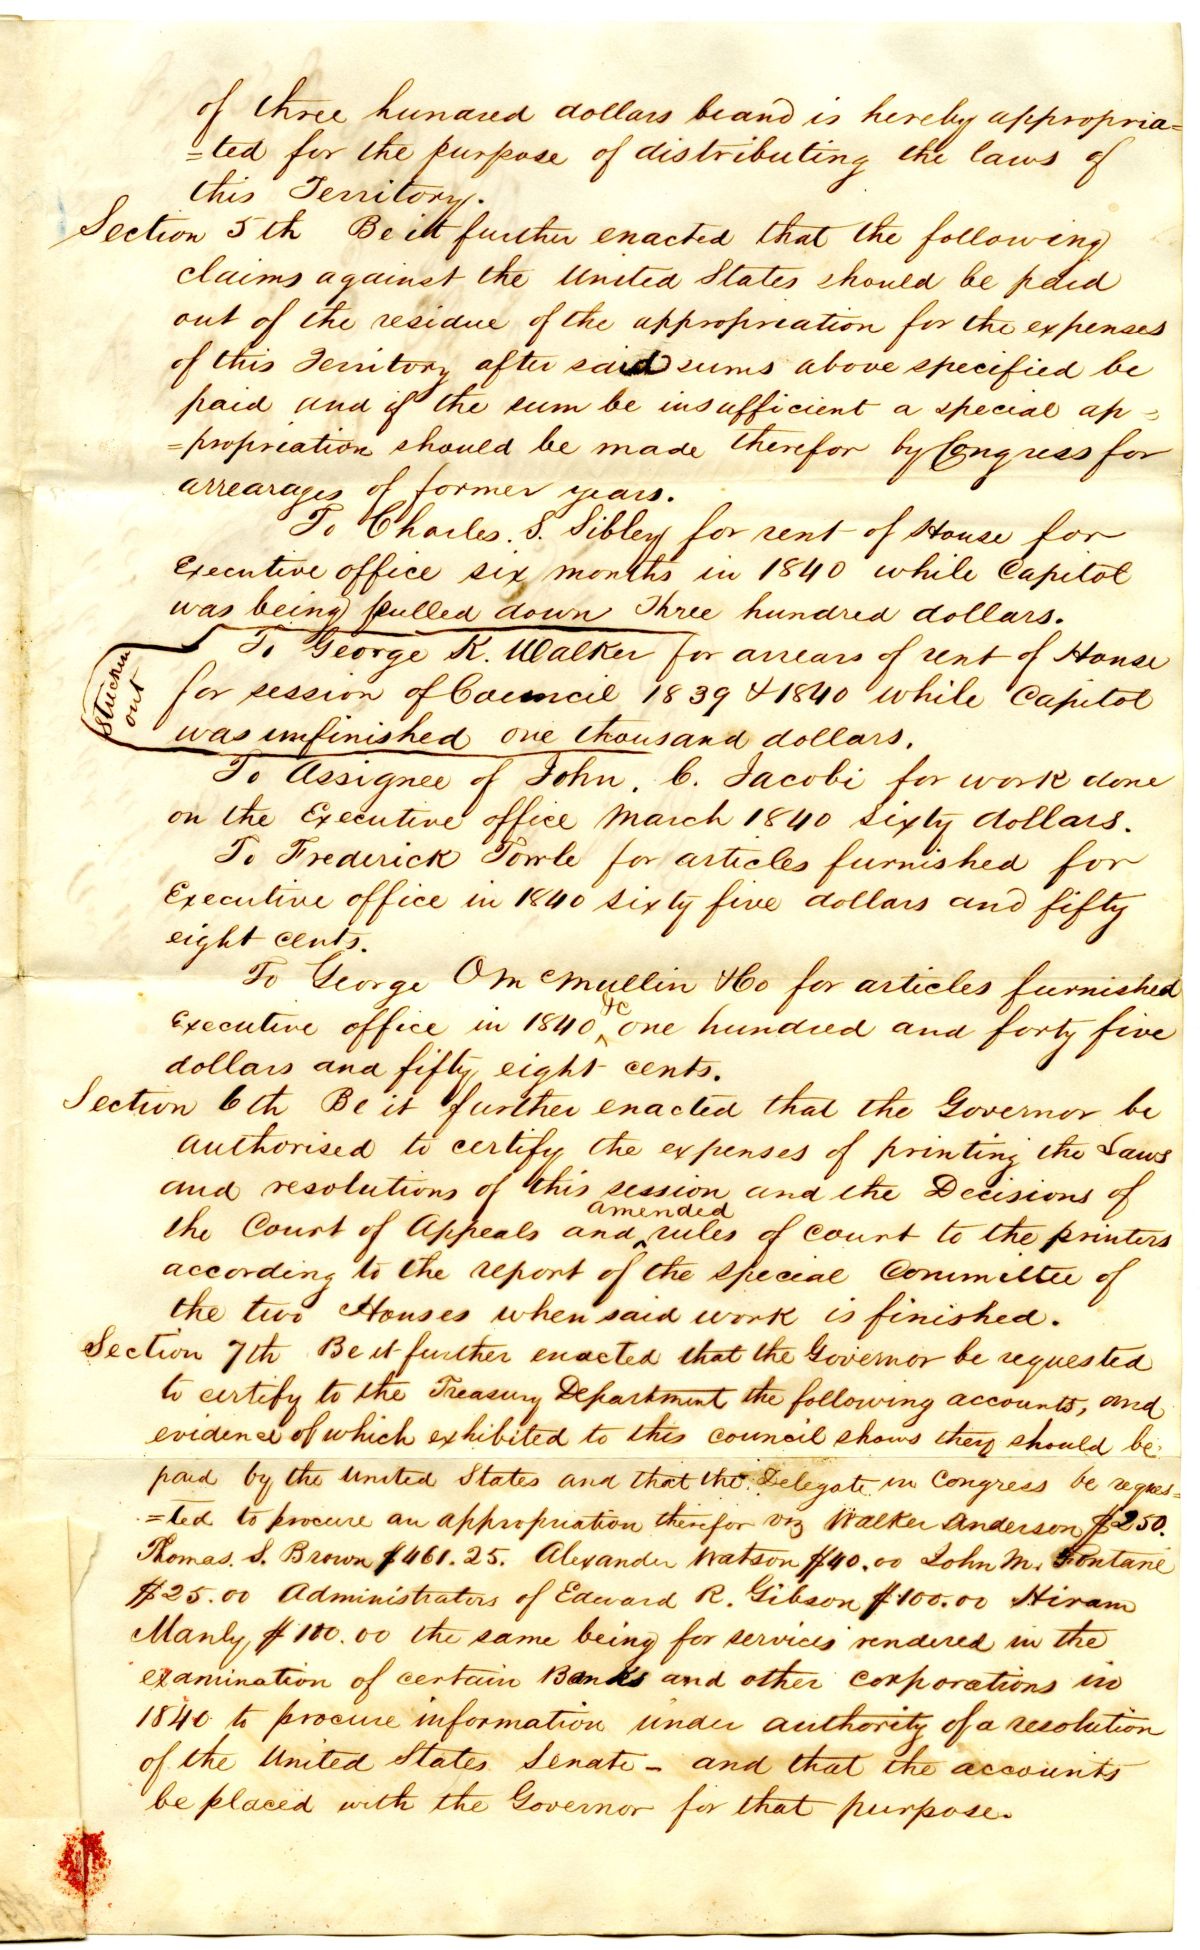 of three hundred dollars be and is hereby appropria=
=ted for the purpose of distributing the laws of
this Territory.
Section 5th Be it further enacted that the following
claims against the United States should be paid
out of the residue of the appropriation for the expenses
of this Territory after said sums above specified be
paid and if the sum be insufficient a special ap=
=propriation should be made therefor by Congress for
arrearages of former years.
To Charles. S. Sibley for rent of House for
Executive office six months in 1840 while Capitol
was being pulled down Three hundred dollars.
To George K. Walker for arrears of rent of House
Stricken out
for session of Council 1839 & 1840 while Capitol
was unfinished one thousand dollars.
To Assignee of John. C. Jacobi for work done
on the Executive office March 1840 sixty dollars.
To Frederick Towle for articles furnished for
Executive office in 1840 sixty five dollars and fifty
eight cents.
To George O McMullin & Co for articles furnished
&c
Executive office in 1840 ^ one hundred and forty five
dollars and fifty eight cents.
Section 6th Be it further enacted that the Governor be
authorised to certify the expenses of printing the Laws
and resolutions of this session and the Decisions of
amended
the Court of Appeals and ^ rules of court to the printers
according to the report of the special Committee of
the two Houses when said work is finished.
Section 7th Be it further enacted that the Governor be requested
to certify to the Treasury Department the following accounts, and
evidence of which exhibited to this council shows they should be
paid by the United States and that the Delegate in Congress be reques=
=ted to procure an appropriation therefor viz Walker Anderson $250.
Thomas. S. Brown $461.25. Alexander Watson $40.00 John M. Fontane
$25.00 Administrators of Edward R. Gibson $100.00 Hiram
Manly $100.00 the same being for services rendered in the
examination of certain Banks and other corporations in
1840 to procure information under authority of a resolution
of the United States Senate - and that the accounts
be placed with the Governor for that purpose.